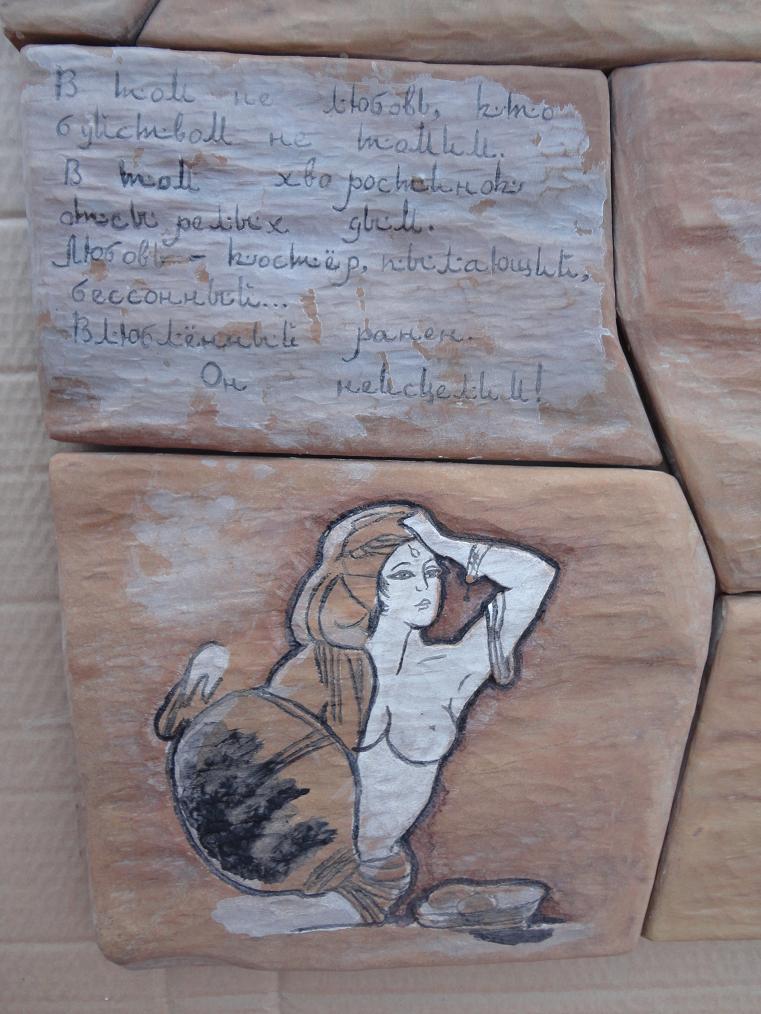 В том не любовь, кто
буйством не томим.
В том хворостинок
отсырелых дым.
Любовь - костёр, пылающий,
бессонный...
Влюблённый ранен.
Он неисцелим!